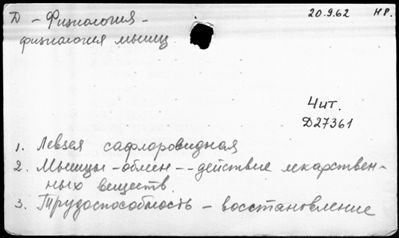 Д - Физиология - 20.9.62 НР.
физиология мышц
Чит.
Д27361
1. Левзея сафлоровидная
2. Мышцы - обмен -- действие лекарствен-
ных веществ.
3. Трудоспособность - восстановление